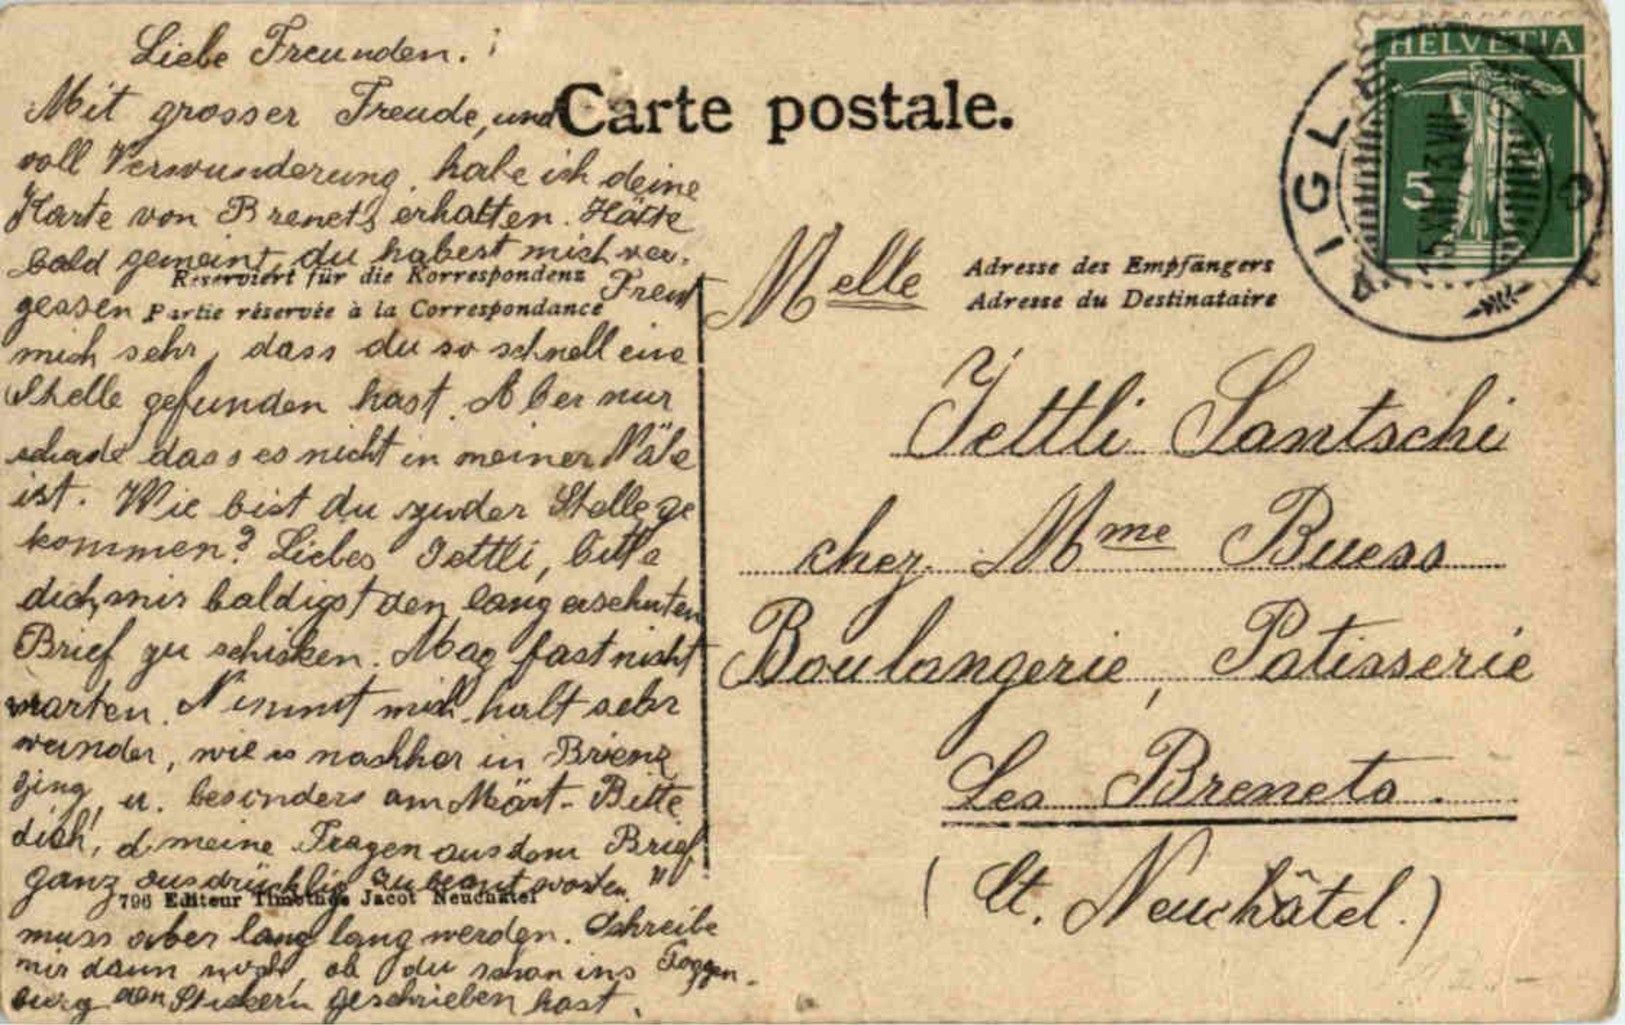 Liebe Freunden.
Mit grosser Freude, und
voll Verwunderung, habe ich deine
Karte von Brenets erhalten. Hätte
bald gemeint, du habest mich ver-
gessen Freut
mich sehr, dass du so schnell eine
Stelle gefunden hast. Aber nur
schade dass es nicht in meiner Nähe
ist. Wie bist du zu der Stelle ge
kommen? Liebes Jettli, bitte
dich, mir baldigst den lang ersehnten
Brief zu schiken. Mag fast nicht
warten. Nimmt mich halt sehr
wunder, wie es nachher in Brienz
ging, u. besonders am Märt. Bitte
dich, d meine Fragen aus dem Brief
ganz ausdrücklig zu beantworten.
muss aber lang lang werden. Schreibe
mir dann ob du schon ins Toggen-
burg den geschrieben hast.
Carte postale.
Reserviert für die Korrespondenz
Partie réservée à la Correspondance
Adresse des Empfängers
Adresse du Destinataire
Melle
Jettli Santschi
chez Mme Buess
Boulangerie, Patisserie
Les Brenets.
(Ct. Neuchâtel.)
796 Editeur Timothée Jacot Neuchâtel
HELVETIA
5
AIGLE